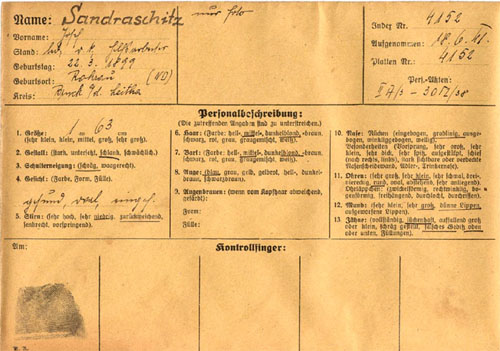 Name: Sandraschitz nur foto
Vorname: Josef
Stand: led. r. k. Hilfsarbeiter
Geburtstag: 22. 3. 1899
Geburtsort: Rohrau (ND)
Kreis: Bruck a/d. Leitha
Index Nr. 4152
Aufgenommen: 18. 6. 41.
Platten Nr. 4152
Pers.-Akten:
II A/3 - 3072/38
Personalbeschreibung:
(Die zutreffenden Angaben sind zu unterstreichen.)
1. Größe: 1 m 63 cm
(sehr klein, klein, mittel, groß, sehr groß)
2. Gestalt: (stark, untersetzt, schlank, schwächlich.)
3. Schulterneigung: (schräg, waagerecht.)
4. Gesicht: (Farbe, Form, Fülle).
gesund, oval,
5. Stirn: (sehr hoch, sehr niedrig, zurückweichend,
senkrecht, vorspringend.)
6. Haar: (Farbe: hell-, mittel-, dunkelblond, -braun,
schwarz, rot, grau, graugemischt, weiß).
7. Bart: (Farbe: hell-, mittel-, dunkelblond, -braun,
schwarz, rot, grau, graugemischt, weiß).
8. Auge: (blau, grau, gelb, gelbrot, hell-, dunkel-
braun, schwarzbraun).
9. Augenbrauen: (wenn vom Kopfhaar abweichend,
gefärbt):
Form:
Fülle:
10. Nase: Rücken (eingebogen, gradlinig, ausge-
bogen, winkelig, weiß).
Besonderheiten (Vorsprung, sehr groß, sehr
klein, sehr dick, sehr spitz, aufgestülpt, schief
(nach rechts, links), stark sichtbare oder verdeckte
Nasenscheidewand, Adler-, Trinkernase).
11. Ohren: (sehr groß, sehr klein, sehr schmal, drei-
eckig, rund, oval, abstehend, sehr anliegend.)
Ohrläppchen: (zwickelförmig, rechtwinklig, be-
grenzend, freihängend, durchlocht, durchschlitzt).
12. Mund: (sehr klein, sehr groß, dünne Lippen,
aufgeworfene Lippen).
13. Zähne: (vollständig, lückenhaft, auffallend groß
oder klein, schräg gestellt, falsches Gebiß oben
oder unten, Füllungen).
Am:
Kontrollfinger: